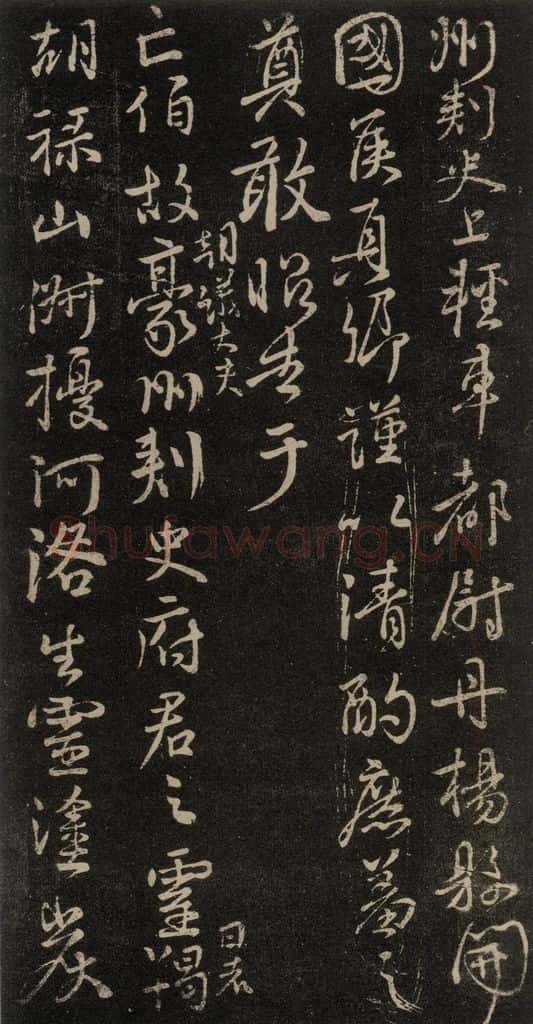 州刺史上輕車都尉丹楊縣開
國侯真卿謹以清酌庶羞之
奠敢昭告于
朝議大夫
日者
亡伯故豪州刺史府君之靈羯
胡祿山俶擾河洛生靈塗炭
Shufawang.CN